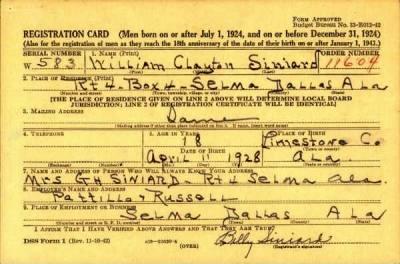 FORM APPROVED
REGISTRATION CARD (Men born on or after July 1, 1924, and on or before December 31, 1924)
(Also for the registration of men as they reach the 18th anniversary of the date of their birth on or after January 1, 1943.)
SERIAL NUMBER 1. NAME (Print) ORDER NUMBER
W 583 William Clayton Siniard 11604
2. PLACE OF RESIDENCE (Print)
Rt 4 - Box 4 - Selma Dallas Ala
[THE PLACE OF RESIDENCE GIVEN ON LINE 2 ABOVE WILL DETERMINE LOCAL BOARD
JURISDICTION; LINE 2 OF REGISTRATION CERTIFICATE WILL BE IDENTICAL]
3. MAILING ADDRESS
Same
[Mailing address if other than place indicated on line 2. If same, insert word same]
4. TELEPHONE 5. AGE IN YEARS 6. PLACE OF BIRTH
18 Limestone Co.
DATE OF BIRTH
April 11 1928 Ala.
7. NAME AND ADDRESS OF PERSON WHO WILL ALWAYS KNOW YOUR ADDRESS
Mrs G H Siniard - Rt 4 Selma Ala.
8. EMPLOYER'S NAME AND ADDRESS
Pattillo + Russell
9. PLACE OF EMPLOYMENT OR BUSINESS
Selma Dallas Ala
I AFFIRM THAT I HAVE VERIFIED ABOVE ANSWERS AND THAT THEY ARE TRUE.
DSS Form 1 (Rev. 11-16-42) (over) Billy Siniard
(Registrant's signature)